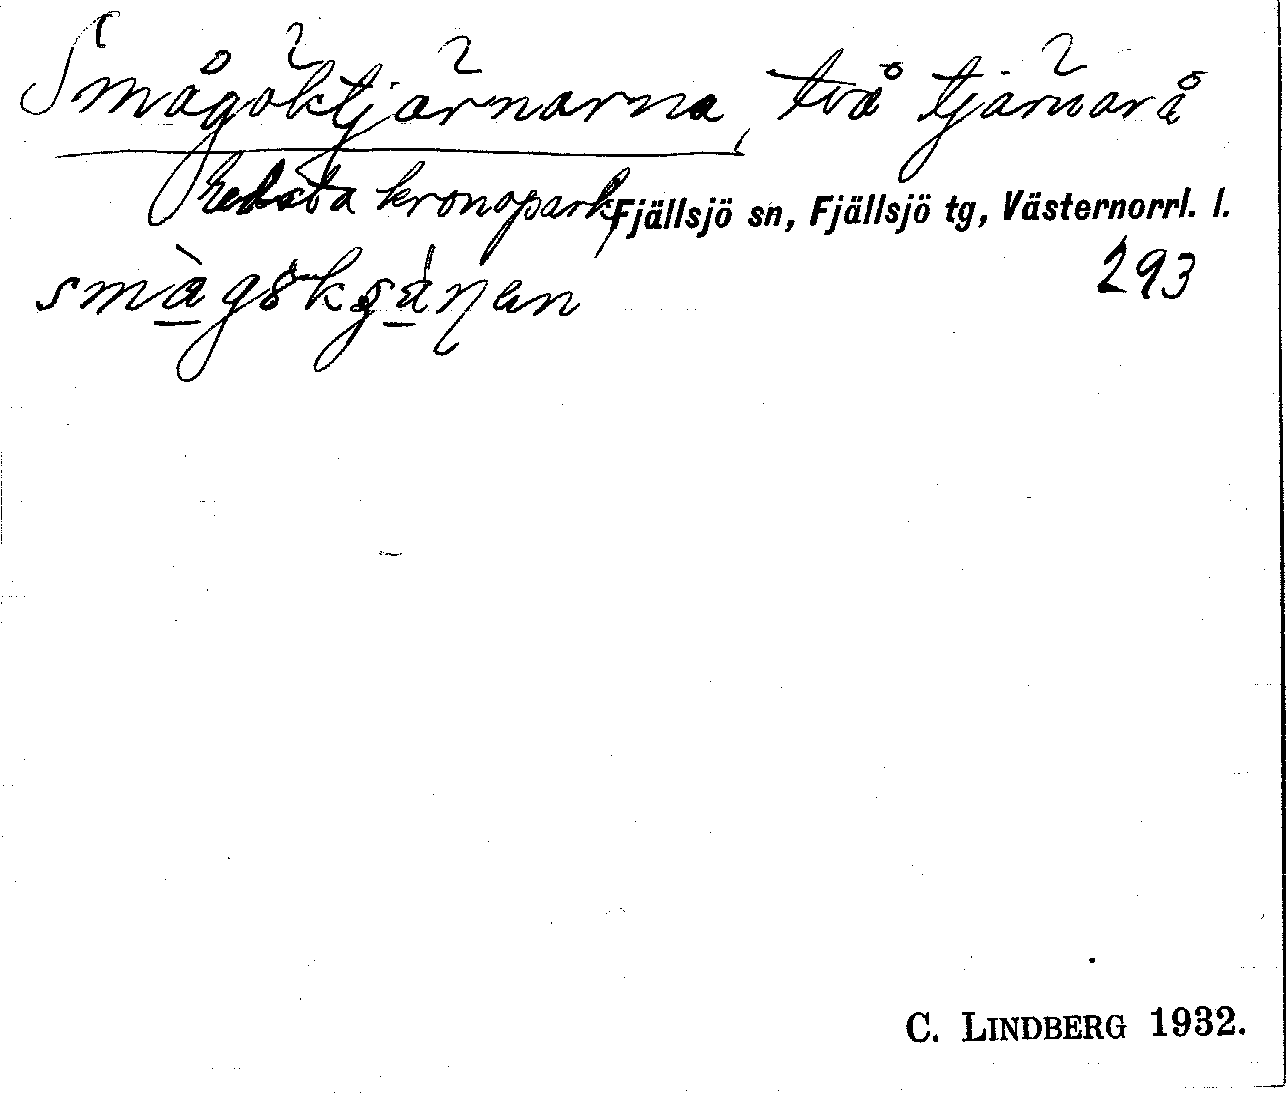 Smågöktjärnarna, två tjärnar å
kronopark, Fjällsjö sn, Fjällsjö tg, Västernorrl. l.
293
C. LINDBERG 1932.